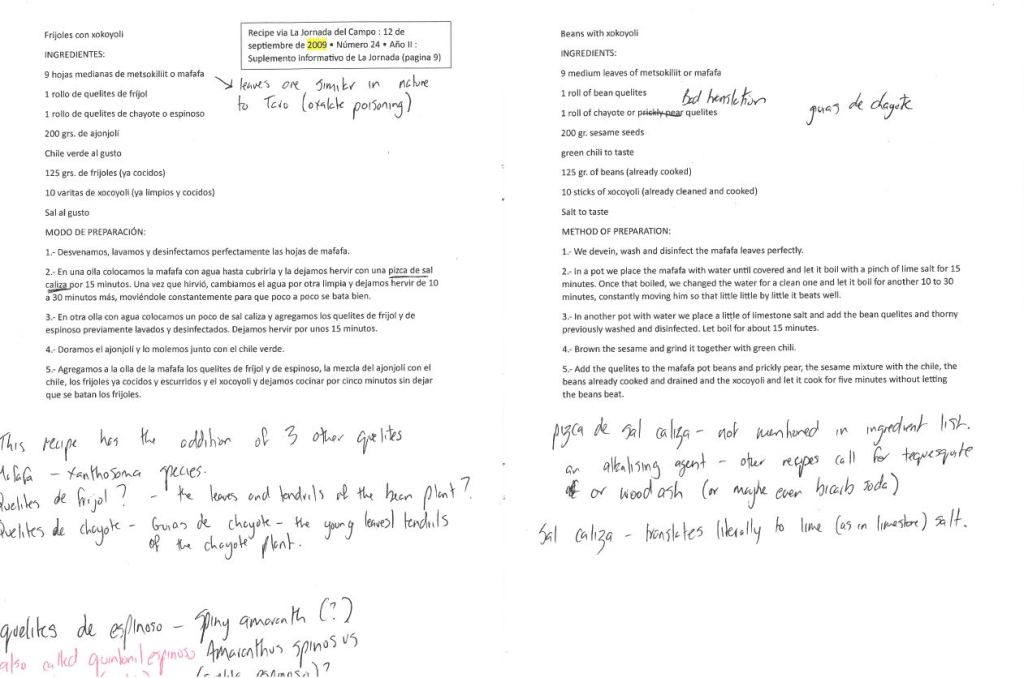 Frijoles con xokoyoli
Recipe via La Jornada del Campo : 12 de
septiembre de 2009 • Número 24 • Año II :
Suplemento informativo de La Jornada (pagina 9)
INGREDIENTES:
9 hojas medianas de metsokiliit o mafafa
leaves are similar in nature
to Taro (oxalate poisoning)
1 rollo de quelites de fríjol
1 rollo de quelites de chayote o espinoso
200 grs. de ajonjolí
Chile verde al gusto
125 grs. de frijoles (ya cocidos)
10 varitas de xocoyoli (ya limpios y cocidos)
Sal al gusto
MODO DE PREPARACIÓN:
1.- Desvenamos, lavamos y desinfectamos perfectamente las hojas de mafafa.
2.- En una olla colocamos la mafafa con agua hasta cubrirla y la dejamos hervir con una pizca de sal
caliza por 15 minutos. Una vez que hirvió, cambiamos el agua por otra limpia y dejamos hervir de 10
a 30 minutos más, moviéndole constantemente para que poco a poco se bata bien.
3.- En otra olla con agua colocamos un poco de sal caliza y agregamos los quelites de fríjol y de
espinoso previamente lavados y desinfectados. Dejamos hervir por unos 15 minutos.
4.- Doramos el ajonjolí y lo molemos junto con el chile verde.
5.- Agregamos a la olla de la mafafa los quelites de fríjol y de espinoso, la mezcla del ajonjolí con el
chile, los frijoles ya cocidos y escurridos y el xocoyoli y dejamos cocinar por cinco minutos sin dejar
que se batan los frijoles.
This recipe has the addition of 3 other quelites
Mafafa - Xanthosoma species.
Quelites de frijol? - the leaves and tendrils of the bean plant?
Quelites de chayote - Guias de chayote - the young leaves/tendrils
of the chayote plant.
quelites de espinoso - spiny amaranth (?)
also called quintonil espinoso Amaranthus spinosus
Beans with xokoyoli
INGREDIENTS:
9 medium leaves of metsokiliit or mafafa
1 roll of bean quelites
Bad translation
1 roll of chayote or prickly pear quelites
guias de chayote
200 gr. sesame seeds
green chili to taste
125 gr. of beans (already cooked)
10 sticks of xocoyoli (already cleaned and cooked)
Salt to taste
METHOD OF PREPARATION:
1.- We devein, wash and disinfect the mafafa leaves perfectly.
2.- In a pot we place the mafafa with water until covered and let it boil with a pinch of lime salt for 15
minutes. Once that boiled, we changed the water for a clean one and let it boil for another 10 to 30
minutes, constantly moving him so that little little by little it beats well.
3.- In another pot with water we place a little of limestone salt and add the bean quelites and thorny
previously washed and disinfected. Let boil for about 15 minutes.
4.- Brown the sesame and grind it together with green chili.
5.- Add the quelites to the mafafa pot beans and prickly pear, the sesame mixture with the chile, the
beans already cooked and drained and the xocoyoli and let it cook for five minutes without letting
the beans beat.
pizca de sal caliza - not mentioned in ingredient list.
an alkalising agent - other recipes call for tequesquite
or wood ash (or maybe even bicarb soda)
Sal caliza - translates literally to lime (as in limestone) salt.